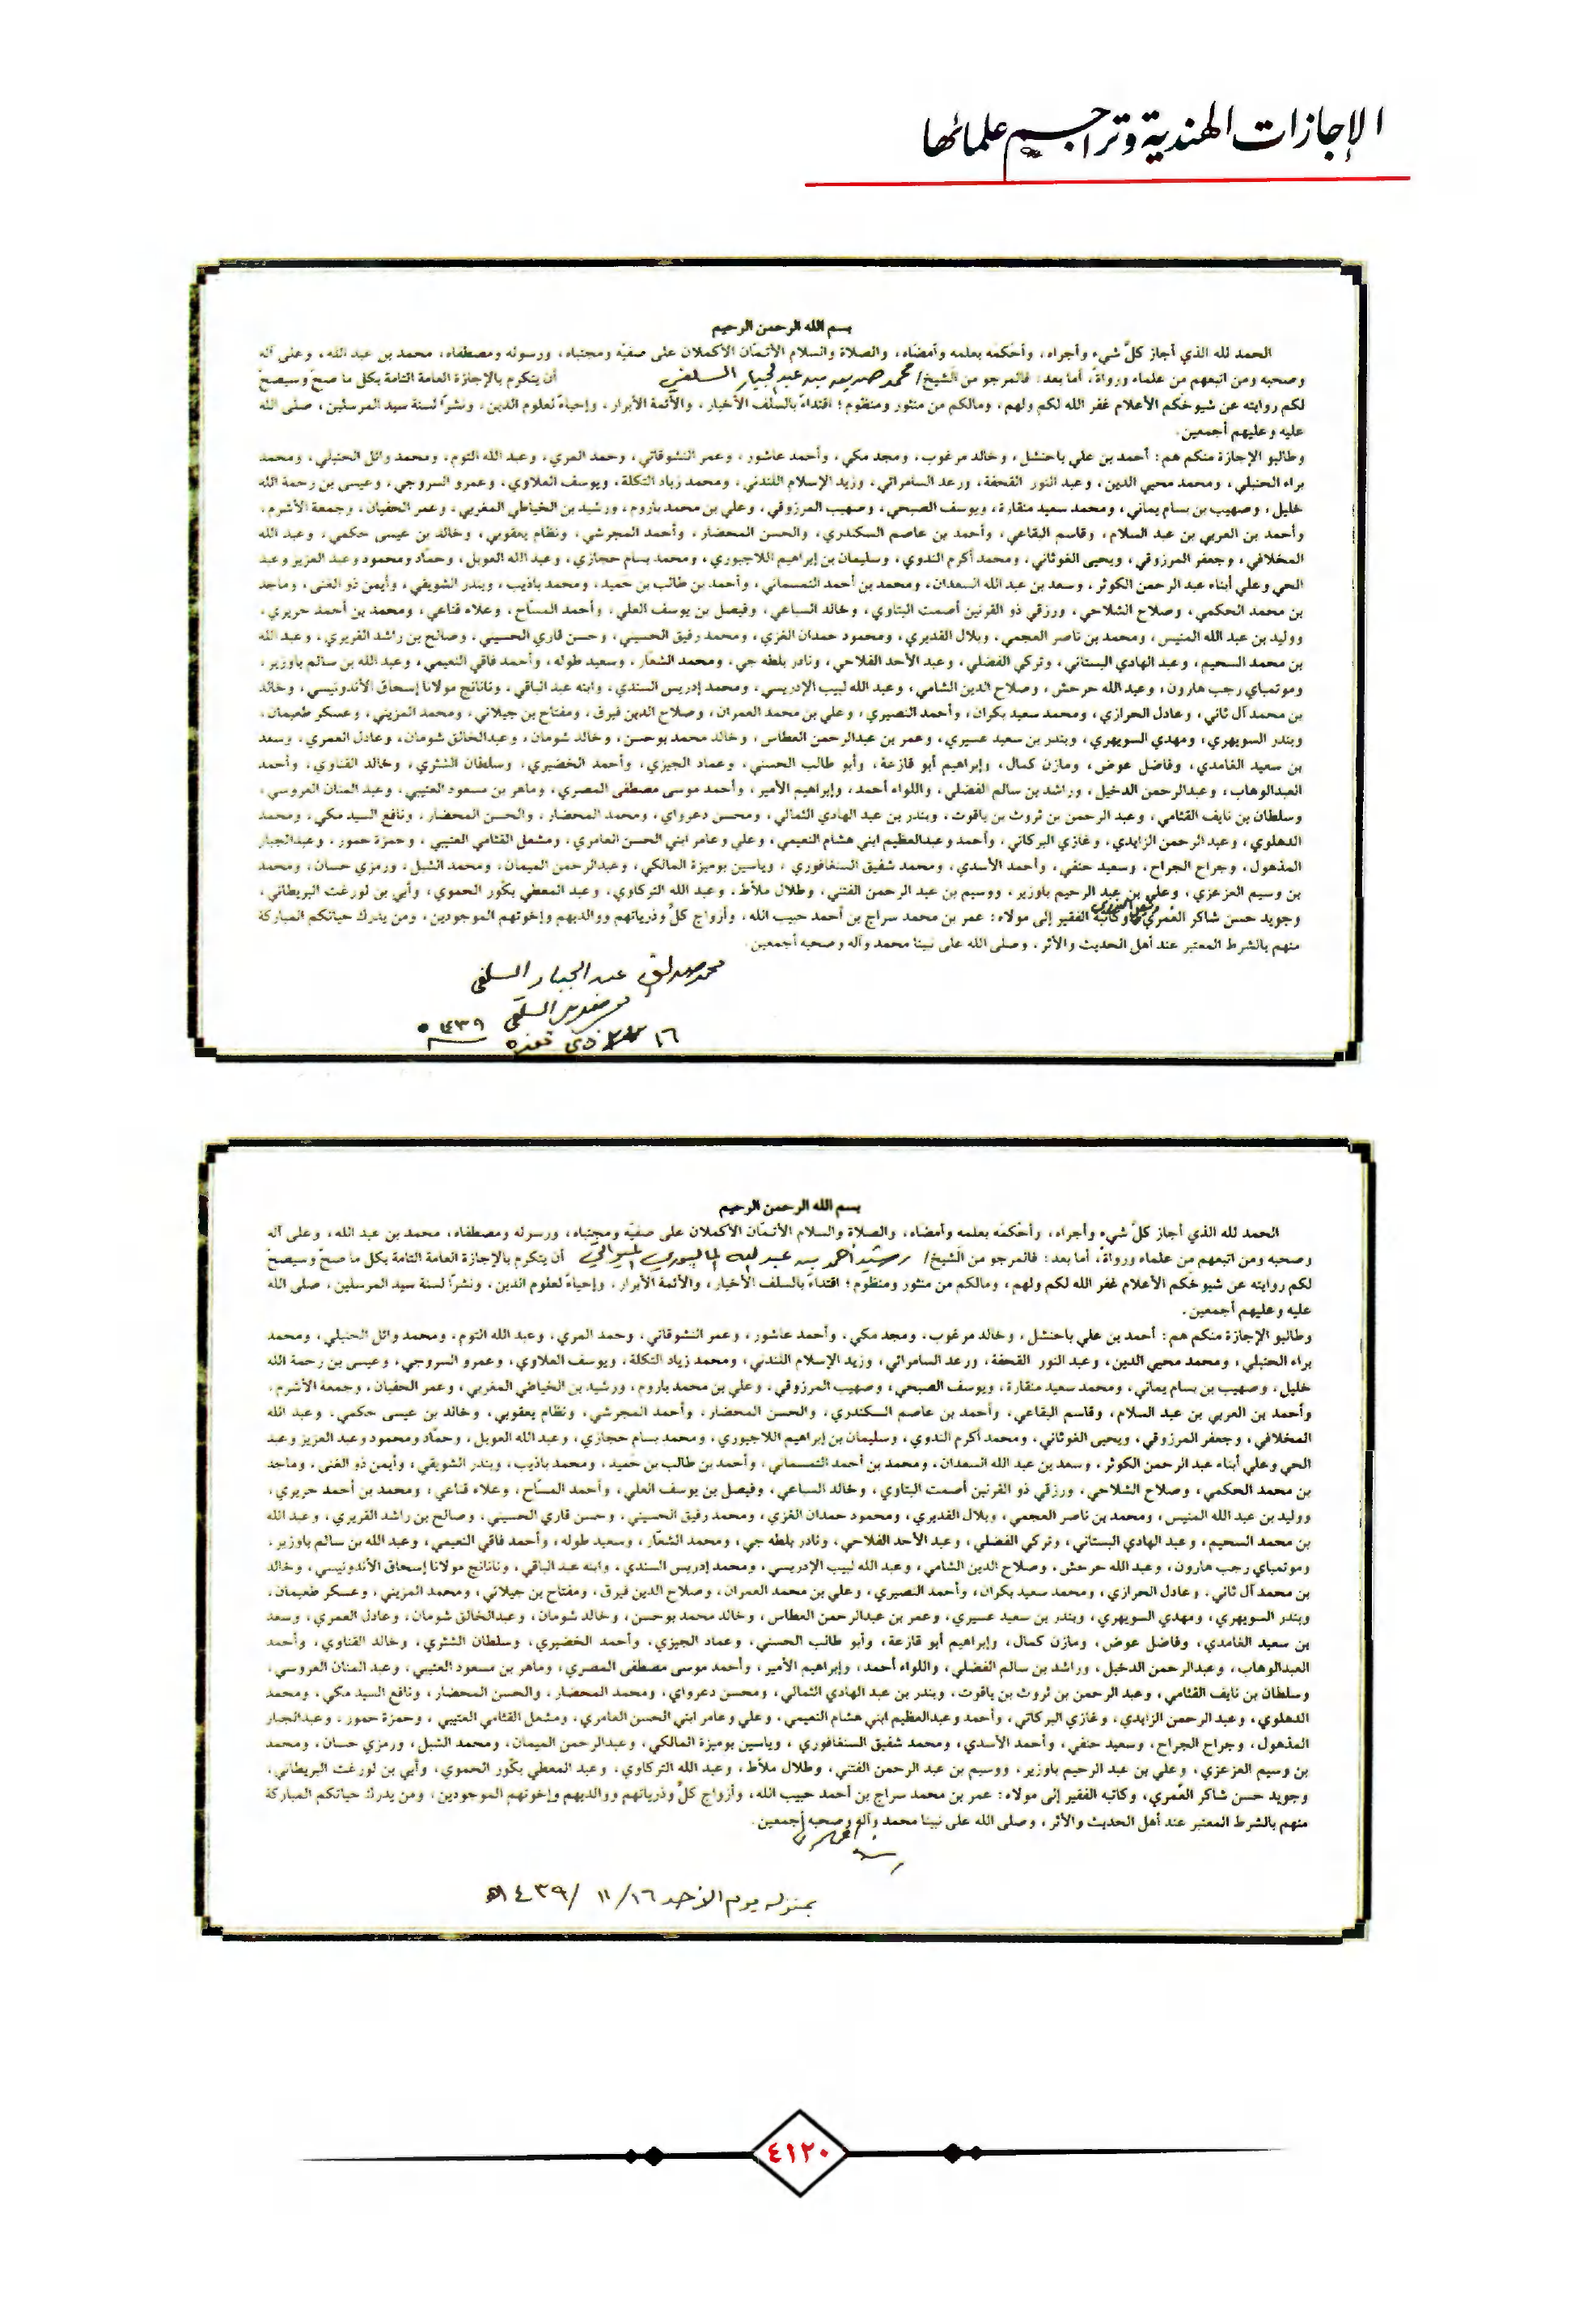 الإجازات الهندية وتراجم علمائها
بسم الله الرحمن الرحيم
الحمد لله الذي أجاز كلَّ شيء وأجراه، وأحْكمَه بعلمه وأمضَاه، والصلاة والسلام الأتمّان الأكملان على صفيّه ومجتباه، ورسوله ومصطفاه، محمد بن عبد الله، وعلى آله
وصحبه ومن اتبعهم من علماء ورواة، أما بعد: فالمرجو من الشيخ/ محمد صديق بن عبد الجبار السلفي أن يتكرم بالإجازة العامة التامة بكل ما صحّ وسيصحّ
لكم روايته عن شيوخكم الأعلام غفر الله لكم ولهم، ومالكم من منثور ومنظوم؛ اقتداءً بالسلف الأخيار، والأئمة الأبرار، وإحياءً لعلوم الدين، ونشرًا لسنة سيد المرسلين، صلى الله
عليه وعليهم أجمعين.
وطالبو الإجازة منكم هم: أحمد بن علي باحنشل، وخالد مرغوب، ومجد مكي، وأحمد عاشور، وعمر النشوقاتي، وحمد المري، وعبد الله التوم، ومحمد وائل الحنبلي، ومحمد
براء الحنبلي، ومحمد محيي الدين، وعبد النور القحفة، ورعد السامرائي، وزيد الإسلام اللندني، ومحمد زياد التكلة، ويوسف العلاوي، وعمرو السروجي، وعيسى بن رحمة الله
خليل، وصهيب بن بسام يماني، ومحمد سعيد منقارة، ويوسف الصبحي، وصهيب المرزوقي، وعلي بن محمد باروم، ورشيد بن الخياطي المغربي، وعمر الحفيان، وجمعة الأشرم،
وأحمد بن العربي بن عبد السلام، وقاسم البقاعي، وأحمد بن عاصم السكندري، والحسن المحضار، وأحمد المجرشي، ونظام يعقوبي، وخالد بن عيسى حكمي، وعبد الله
المخلافي، وجعفر المرزوقي، ويحيى الغوثاني، ومحمد أكرم الندوي، وسليمان بن إبراهيم اللاجبوري، ومحمد بسام حجازي، وعبد الله العوبل، وحمّاد ومحمود وعبد العزيز وعبد
الحي وعلي أبناء عبد الرحمن الكوثر، وسعد بن عبد الله السعدان، ومحمد بن أحمد التمسماني، وأحمد بن طالب بن حميد، ومحمد باذيب، وبندر الشويقي، وأيمن ذو الغنى، وماجد
بن محمد الحكمي، وصلاح الشلاحي، ورزقي ذو القرنين أصمت البتاوي، وخالد السباعي، وفيصل بن يوسف العلي، وأحمد المسّاح، وعلاء قناعي، ومحمد بن أحمد حريري،
ووليد بن عبد الله المنيس، ومحمد بن ناصر العجمي، وبلال القديري، ومحمود حمدان الغزي، ومحمد رفيق الحسيني، وحسن قاري الحسيني، وصالح بن راشد القريري، وعبد الله
بن محمد السحيم، وعبد الهادي البستاني، وتركي الفضلي، وعبد الأحد الفلاحي، ونادر بلطه جي، ومحمد الشعّار، وسعيد طوله، وأحمد فاقي النعيمي، وعبد الله بن سالم باوزير،
وموتمباي رجب هارون، وعبد الله حرحش، وصلاح الدين الشامي، وعبد الله لبيب الإدريسي، ومحمد إدريس السندي، وابنه عبد الباقي، ونانانج مولانا إسحاق الأندونيسي، وخالد
بن محمد آل ثاني، وعادل الحرازي، ومحمد سعيد بكران، وأحمد النصيري، وعلي بن محمد العمران، وصلاح الدين فيرق، ومفتاح بن جيلاني، ومحمد المزيني، وعسكر طعيمان،
وبندر السويهري، ومهدي السويهري، وبندر بن سعيد عسيري، وعمر بن عبدالرحمن العطاس، وخالد محمد بوحسن، وخالد شومان، وعبدالخالق شومان، وعادل العمري، وسعد
بن سعيد الغامدي، وفاضل عوض، ومازن كمال، وإبراهيم أبو قازعة، وأبو طالب الحسني، وعماد الجيزي، وأحمد الخضيري، وسلطان الشثري، وخالد القناوي، وأحمد
العبدالوهاب، وعبدالرحمن الدخيل، وراشد بن سالم الفضلي، واللواء أحمد، وإبراهيم الأمير، وأحمد موسى مصطفى المصري، وماهر بن مسعود العتيبي، وعبد المنان العروسي،
وسلطان بن نايف القثامي، وعبد الرحمن بن ثروت بن ياقوت، وبندر بن عبد الهادي الثمالي، ومحسن دعرواي، ومحمد المحضار، والحسن المحضار، ونافع السيد مكي، ومحمد
الدهلوي، وعبد الرحمن الزايدي، وغازي البركاتي، وأحمد وعبدالعظيم ابني هشام النعيمي، وعلي وعامر ابني الحسن العامري، ومشعل القثامي العتيبي، وحمزة حمور، وعبدالجبار
المذهول، وجراح الجراح، وسعيد حنفي، وأحمد الأسدي، ومحمد شفيق السنغافوري، وياسين بوميزة المالكي، وعبدالرحمن الميمان، ومحمد الشبل، ورمزي حسان، ومحمد
بن وسيم العزعزي، وعلي بن عبد الرحيم باوزير، ووسيم بن عبد الرحمن الفتني، وطلال ملّاط، وعبد الله التركاوي، وعبد المعطي بكّور الحموي، وأبي بن لورغت البريطاني،
وجويد حسن شاكر العُمري، وكاتبه الفقير إلى مولاه: عمر بن محمد سراج بن أحمد حبيب الله، وأزواج كلٍّ وذرياتهم ووالديهم وإخوتهم الموجودين، ومن يدرك حياتكم المباركة
منهم بالشرط المعتبر عند أهل الحديث والأثر، وصلى الله على نبينا محمد وآله وصحبه أجمعين.
محمد صديق عبد الجبار السلفي
السلفي
١٦ ذي قعده ١٤٣٩ ه
بسم الله الرحمن الرحيم
الحمد لله الذي أجاز كلَّ شيء وأجراه، وأحْكمَه بعلمه وأمضَاه، والصلاة والسلام الأتمّان الأكملان على صفيّه ومجتباه، ورسوله ومصطفاه، محمد بن عبد الله، وعلى آله
وصحبه ومن اتبعهم من علماء ورواة، أما بعد: فالمرجو من الشيخ/ رشيد أحمد بن عبد الله الميواتي أن يتكرم بالإجازة العامة التامة بكل ما صحّ وسيصحّ
لكم روايته عن شيوخكم الأعلام غفر الله لكم ولهم، ومالكم من منثور ومنظوم؛ اقتداءً بالسلف الأخيار، والأئمة الأبرار، وإحياءً لعلوم الدين، ونشرًا لسنة سيد المرسلين، صلى الله
عليه وعليهم أجمعين.
وطالبو الإجازة منكم هم: أحمد بن علي باحنشل، وخالد مرغوب، ومجد مكي، وأحمد عاشور، وعمر النشوقاتي، وحمد المري، وعبد الله التوم، ومحمد وائل الحنبلي، ومحمد
براء الحنبلي، ومحمد محيي الدين، وعبد النور القحفة، ورعد السامرائي، وزيد الإسلام اللندني، ومحمد زياد التكلة، ويوسف العلاوي، وعمرو السروجي، وعيسى بن رحمة الله
خليل، وصهيب بن بسام يماني، ومحمد سعيد منقارة، ويوسف الصبحي، وصهيب المرزوقي، وعلي بن محمد باروم، ورشيد بن الخياطي المغربي، وعمر الحفيان، وجمعة الأشرم،
وأحمد بن العربي بن عبد السلام، وقاسم البقاعي، وأحمد بن عاصم السكندري، والحسن المحضار، وأحمد المجرشي، ونظام يعقوبي، وخالد بن عيسى حكمي، وعبد الله
المخلافي، وجعفر المرزوقي، ويحيى الغوثاني، ومحمد أكرم الندوي، وسليمان بن إبراهيم اللاجبوري، ومحمد بسام حجازي، وعبد الله العوبل، وحمّاد ومحمود وعبد العزيز وعبد
الحي وعلي أبناء عبد الرحمن الكوثر، وسعد بن عبد الله السعدان، ومحمد بن أحمد التمسماني، وأحمد بن طالب بن حميد، ومحمد باذيب، وبندر الشويقي، وأيمن ذو الغنى، وماجد
بن محمد الحكمي، وصلاح الشلاحي، ورزقي ذو القرنين أصمت البتاوي، وخالد السباعي، وفيصل بن يوسف العلي، وأحمد المسّاح، وعلاء قناعي، ومحمد بن أحمد حريري،
ووليد بن عبد الله المنيس، ومحمد بن ناصر العجمي، وبلال القديري، ومحمود حمدان الغزي، ومحمد رفيق الحسيني، وحسن قاري الحسيني، وصالح بن راشد القريري، وعبد الله
بن محمد السحيم، وعبد الهادي البستاني، وتركي الفضلي، وعبد الأحد الفلاحي، ونادر بلطه جي، ومحمد الشعّار، وسعيد طوله، وأحمد فاقي النعيمي، وعبد الله بن سالم باوزير،
وموتمباي رجب هارون، وعبد الله حرحش، وصلاح الدين الشامي، وعبد الله لبيب الإدريسي، ومحمد إدريس السندي، وابنه عبد الباقي، ونانانج مولانا إسحاق الأندونيسي، وخالد
بن محمد آل ثاني، وعادل الحرازي، ومحمد سعيد بكران، وأحمد النصيري، وعلي بن محمد العمران، وصلاح الدين فيرق، ومفتاح بن جيلاني، ومحمد المزيني، وعسكر طعيمان،
وبندر السويهري، ومهدي السويهري، وبندر بن سعيد عسيري، وعمر بن عبدالرحمن العطاس، وخالد محمد بوحسن، وخالد شومان، وعبدالخالق شومان، وعادل العمري، وسعد
بن سعيد الغامدي، وفاضل عوض، ومازن كمال، وإبراهيم أبو قازعة، وأبو طالب الحسني، وعماد الجيزي، وأحمد الخضيري، وسلطان الشثري، وخالد القناوي، وأحمد
العبدالوهاب، وعبدالرحمن الدخيل، وراشد بن سالم الفضلي، واللواء أحمد، وإبراهيم الأمير، وأحمد موسى مصطفى المصري، وماهر بن مسعود العتيبي، وعبد المنان العروسي،
وسلطان بن نايف القثامي، وعبد الرحمن بن ثروت بن ياقوت، وبندر بن عبد الهادي الثمالي، ومحسن دعرواي، ومحمد المحضار، والحسن المحضار، ونافع السيد مكي، ومحمد
الدهلوي، وعبد الرحمن الزايدي، وغازي البركاتي، وأحمد وعبدالعظيم ابني هشام النعيمي، وعلي وعامر ابني الحسن العامري، ومشعل القثامي العتيبي، وحمزة حمور، وعبدالجبار
المذهول، وجراح الجراح، وسعيد حنفي، وأحمد الأسدي، ومحمد شفيق السنغافوري، وياسين بوميزة المالكي، وعبدالرحمن الميمان، ومحمد الشبل، ورمزي حسان، ومحمد
بن وسيم العزعزي، وعلي بن عبد الرحيم باوزير، ووسيم بن عبد الرحمن الفتني، وطلال ملّاط، وعبد الله التركاوي، وعبد المعطي بكّور الحموي، وأبي بن لورغت البريطاني،
وجويد حسن شاكر العُمري، وكاتبه الفقير إلى مولاه: عمر بن محمد سراج بن أحمد حبيب الله، وأزواج كلٍّ وذرياتهم ووالديهم وإخوتهم الموجودين، ومن يدرك حياتكم المباركة
منهم بالشرط المعتبر عند أهل الحديث والأثر، وصلى الله على نبينا محمد وآله وصحبه أجمعين.
بمنزله يوم الأحد ١٦/ ١١ /١٤٣٩ه
٤١٢٠